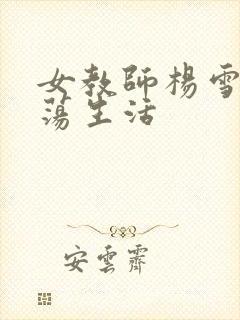 女教師楊雪
蕩生活
安雲霽